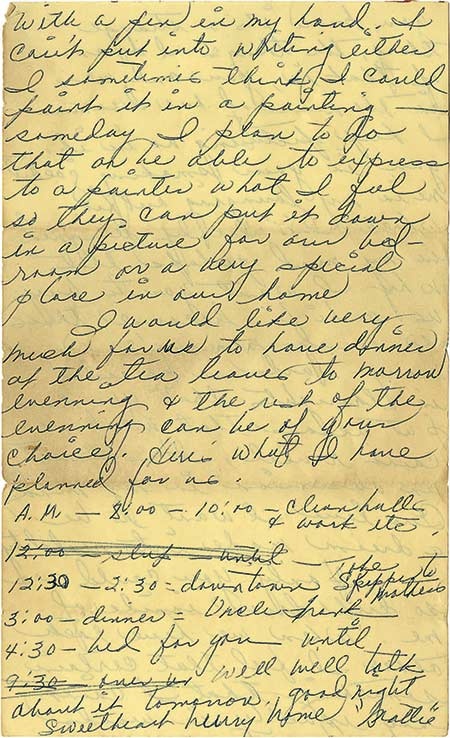 With a pen in my hand. I
can't put into writing either
I sometimes think I could
paint it in a painting —
someday I plan to do
that or be able to express
to a painter what I feel
so they can put it down
in a picture for our bed-
room or a very special
place in our home
I would like very
much for us to have dinner
at the tea leaves to morrow
evenning & the rest of the
evenning can be of your
choice. Here's what I have
planned for us.
A.M — 8:00 - 10:00 — Clean halls
& work etc.
12:00 — sleep until —
12:30 — 2:30 = downtown Take Skipper to
3:00 — dinner = Uncle
4:30 — bed for you until
9:30 — over well well talk
about it tomorrow, good night
Sweetheart